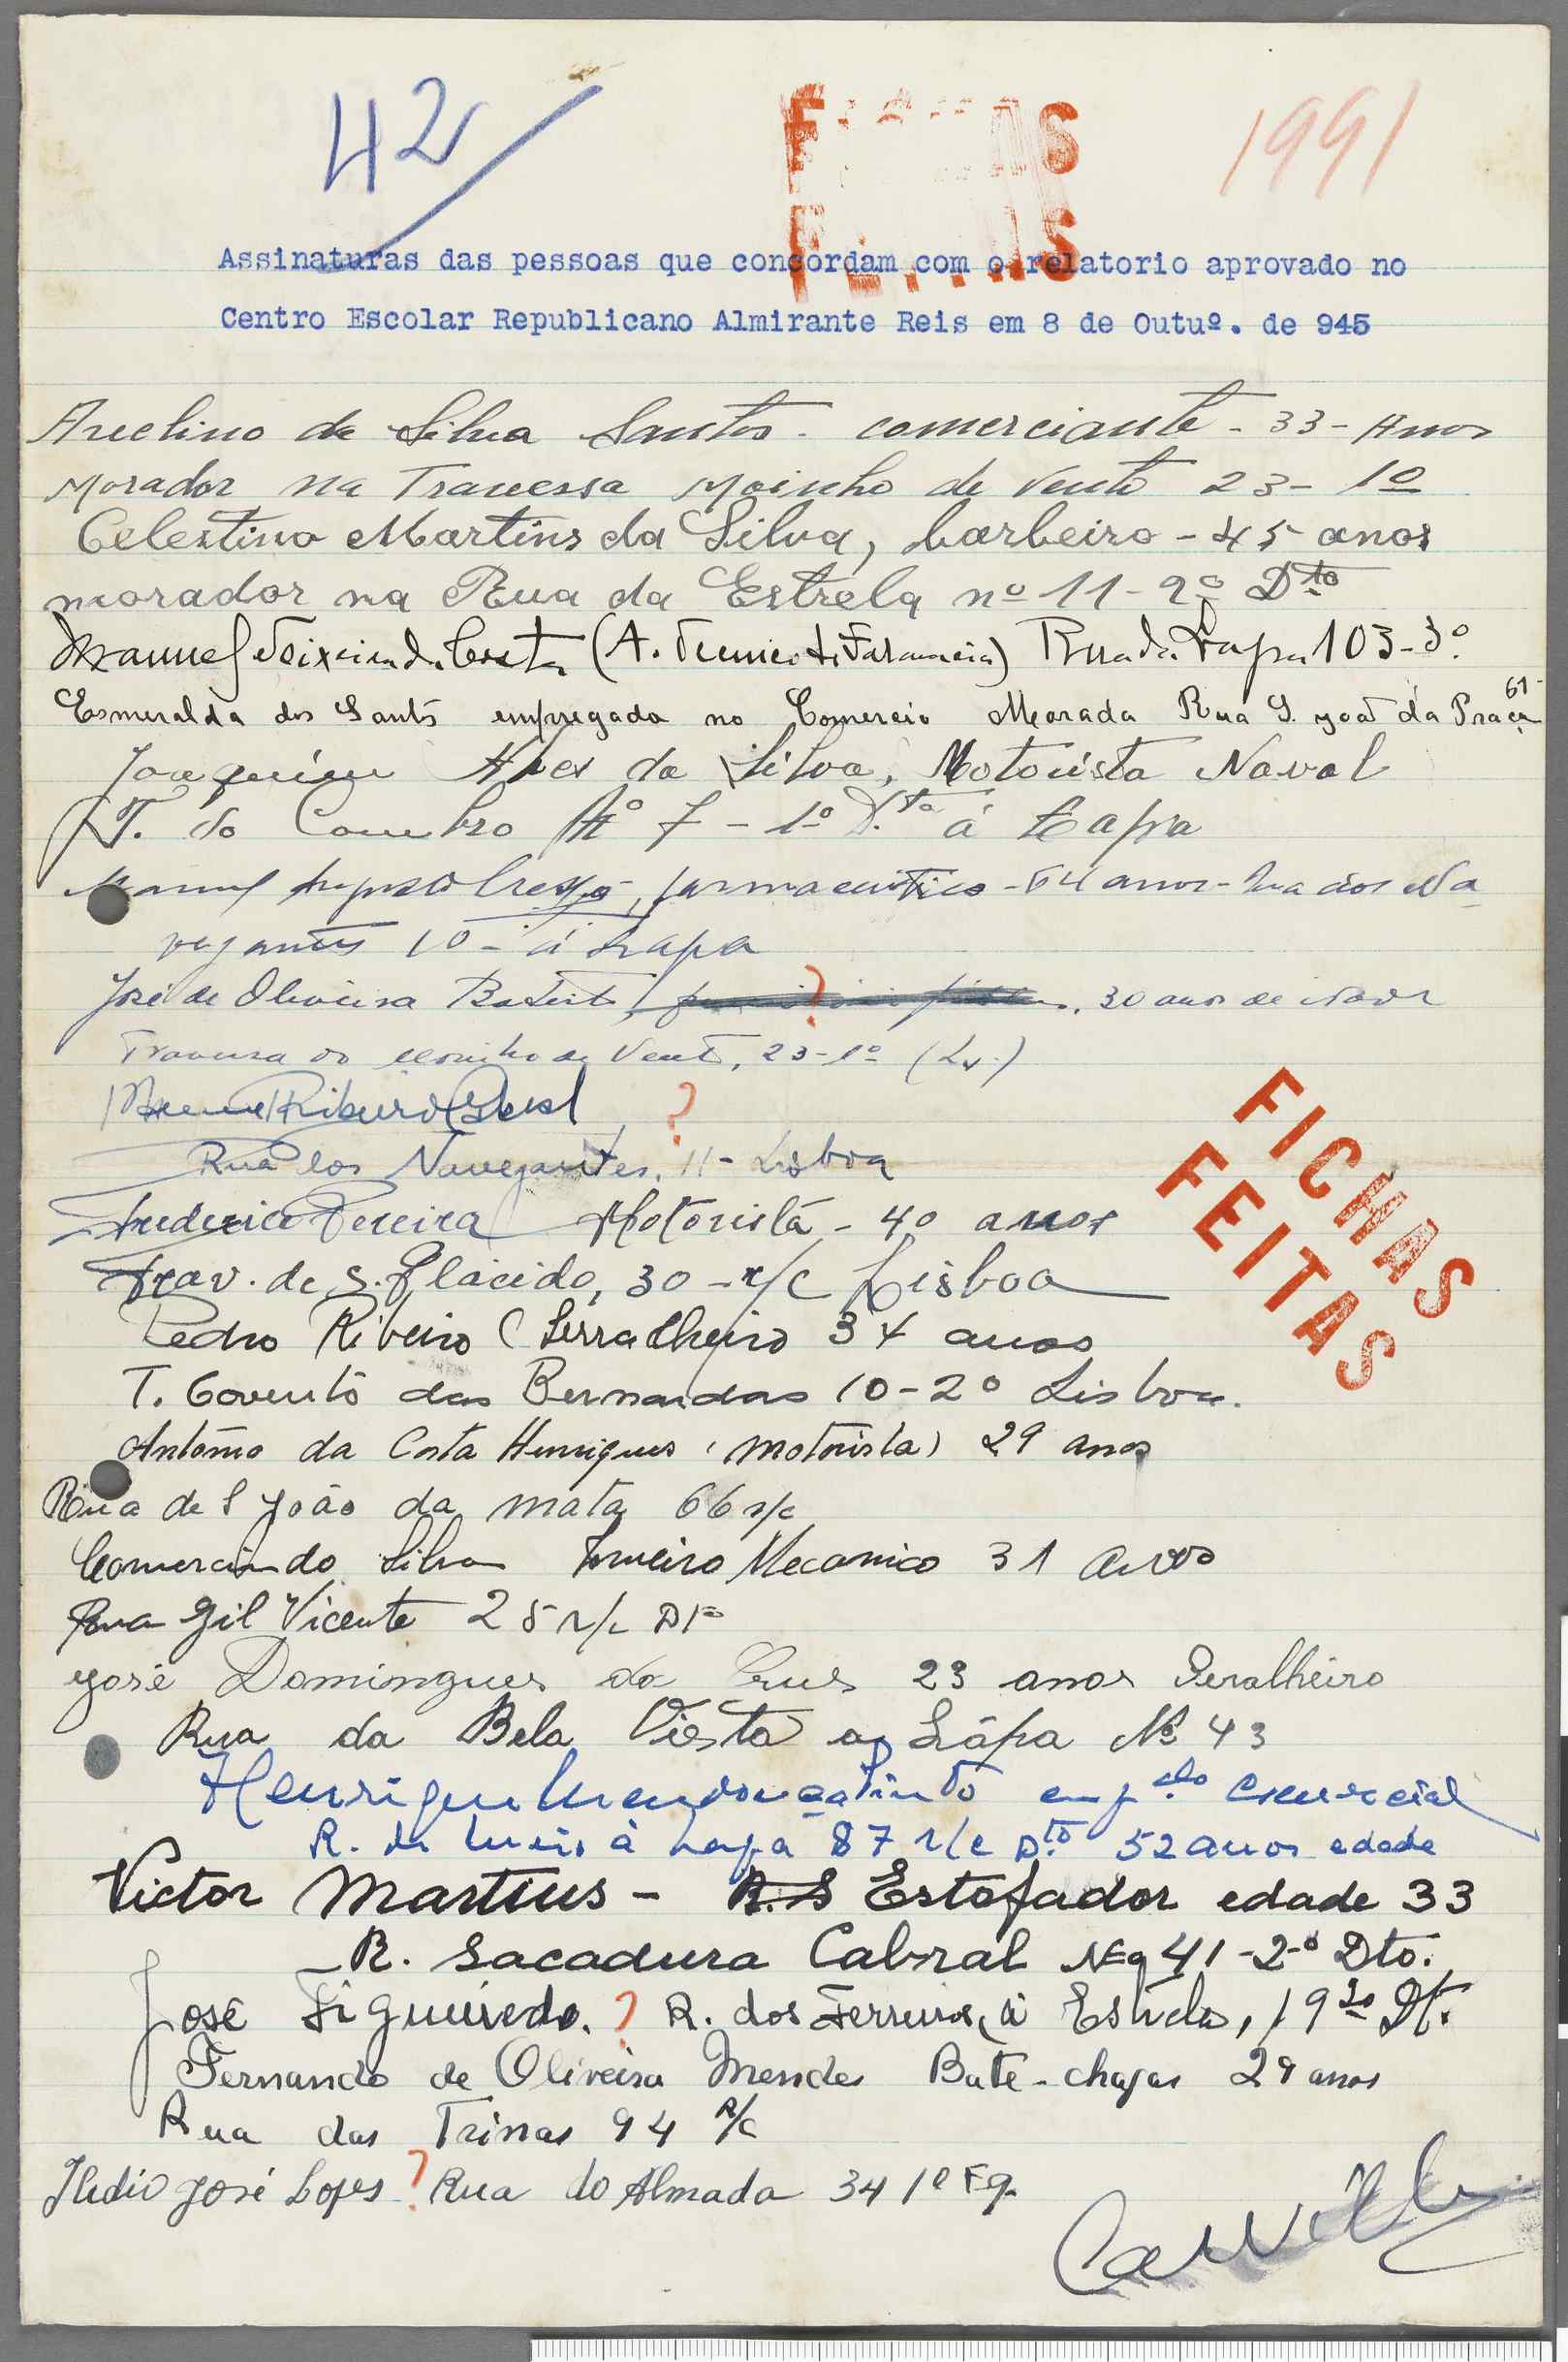 42
FICHAS
FEITAS
1991
Assinaturas das pessoas que concordam com o relatorio aprovado no
Centro Escolar Republicano Almirante Reis em 8 de Outuº. de 945
Avelino da Silva Santos - comerciante - 33 - Anos
Morador na Travessa Moinho de Vento 23 - 1º
Celestino Martins da Silva, barbeiro - 45 anos
morador na Rua da Estrela nº 11 - 2º Dto
Manuel Teixeira da Costa (A. Tecnico de Farmacia) Rua da Lapa 103 - 3º
Esmeralda dos Santos empregada no Comercio Morada Rua S. João da Praça 61
Joaquim Alves da Silva, Motorista Naval
T. do Combro Nº 7 - 1º D.to á Lapa
Manuel Augusto Crespo, farmaceutico - 64 anos - Rua dos Na-
vegantes 10 - á Lapa
José de Oliveira Batista ? 30 anos de idade
Travessa do Moinho de Vento, 23 - 1º (Lx.)
Manuel Ribeiro ?
Rua dos Navegantes, 11 - Lisboa
Frederico Pereira Motorista - 40 anos
Trav. de S. Plácido, 30 - r/c Lisboa
FICHAS
FEITAS
Pedro Ribeiro (Serralheiro 34 anos
T. Convento das Bernardas 10 - 2º Lisboa.
António da Costa Henriques (motorista) 29 anos
Rua de S João da mata 66 r/c
Comercindo Silva Torneiro Mecanico 31 anos
Rua Gil Vicente 25 r/c Dto
José Domingues da Crus 23 anos Seralheiro
Rua da Bela Vista a Lápa Nº 43
Henrique Mendonça Pinto emp.do comercial
R. do Meio à Lapa 87 r/c Dto 52 anos edade
Victor Martins - R. S Estofador edade 33
R. Sacadura Cabral Nº 41 - 2º Dto.
José Figueiredo. ? R. dos Ferreiros, à Estrela, 19 3º Dt.
Fernando de Oliveira Mendes Bate-chapas 29 anos
Rua das Trinas 94 R/c
Ilidio José Lopes ? Rua do Almada 34 1º Eq.